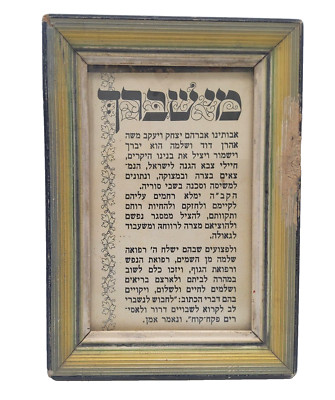 מי שברך
אבותינו אברהם יצחק ויעקב משה
אהרן דוד ושלמה הוא יברך
וישמור ויציל את בנינו היקרים,
חיילי צבא הגנה לישראל, הנמ־
צאים בצרה ובמצוקה, ונתונים
למשיסה וסכנה בשבי סוריה.
הקב"ה ימלא רחמים עליהם
לקיימם ולחזקם ולהחיות רוחם
ותקוותם, להציל ממסגר נפשם
ולהוציאם מצרה לרווחה ומשעבוד
לגאולה.
ולפצועים שבהם ישלח ה' רפואה
שלמה מן השמים, רפואת הנפש
ורפואת הגוף, ויזכו כלם לשוב
במהרה לביתם ולארצם בריאים
ושלמים לחיים ולשלום, ויקויים
בהם דברי הכתוב: "לחבוש לנשברי
לב לקרוא לשבויים דרור ולאסי־
רים פקח־קוח". ונאמר אמן.